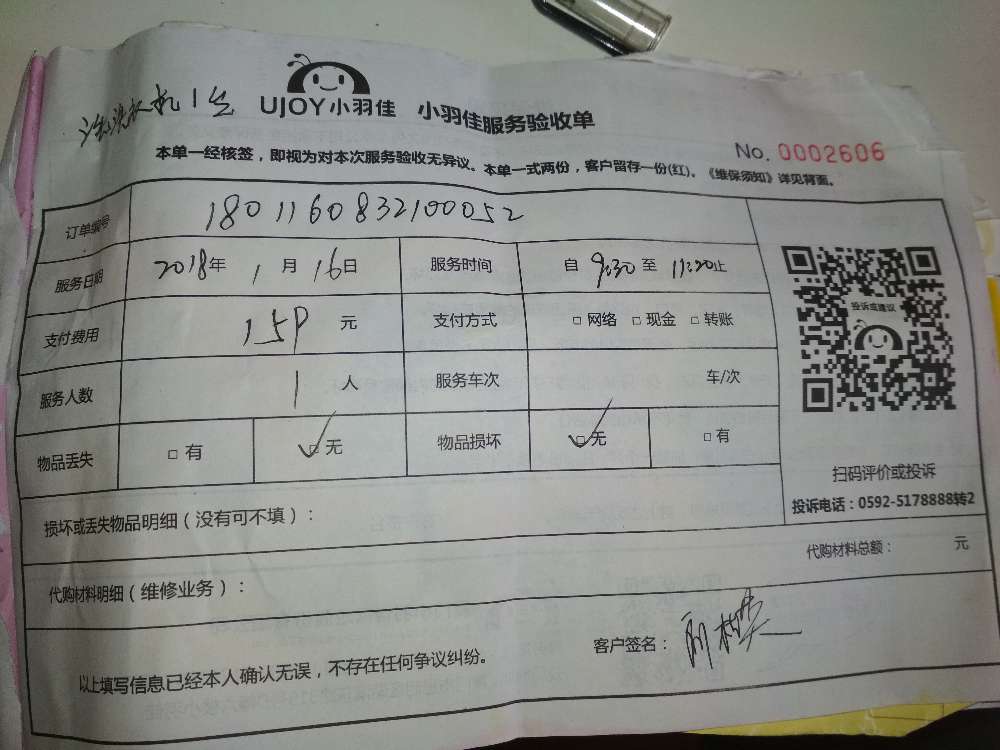 洗洗衣机1台
UJOY小羽佳 小羽佳服务验收单
No. 0002606
本单一经核签，即视为对本次服务验收无异议。本单一式两份，客户留存一份(红)。《维保须知》详见背面。
订单编号 1801160832100052
服务日期 2018年 1月 16日 服务时间 自 9:30 至 11:20止
支付费用 159 元 支付方式 □ 网络 □ 现金 □ 转账
服务人数 1 人 服务车次 车/次
物品丢失 □ 有 ☑ 无 物品损坏 ☑ 无 □ 有
投诉或建议
扫码评价或投诉
投诉电话：0592-5178888转2
损坏或丢失物品明细（没有可不填）：
代购材料明细（维修业务）： 代购材料总额： 元
以上填写信息已经本人确认无误，不存在任何争议纠纷。 客户签名：